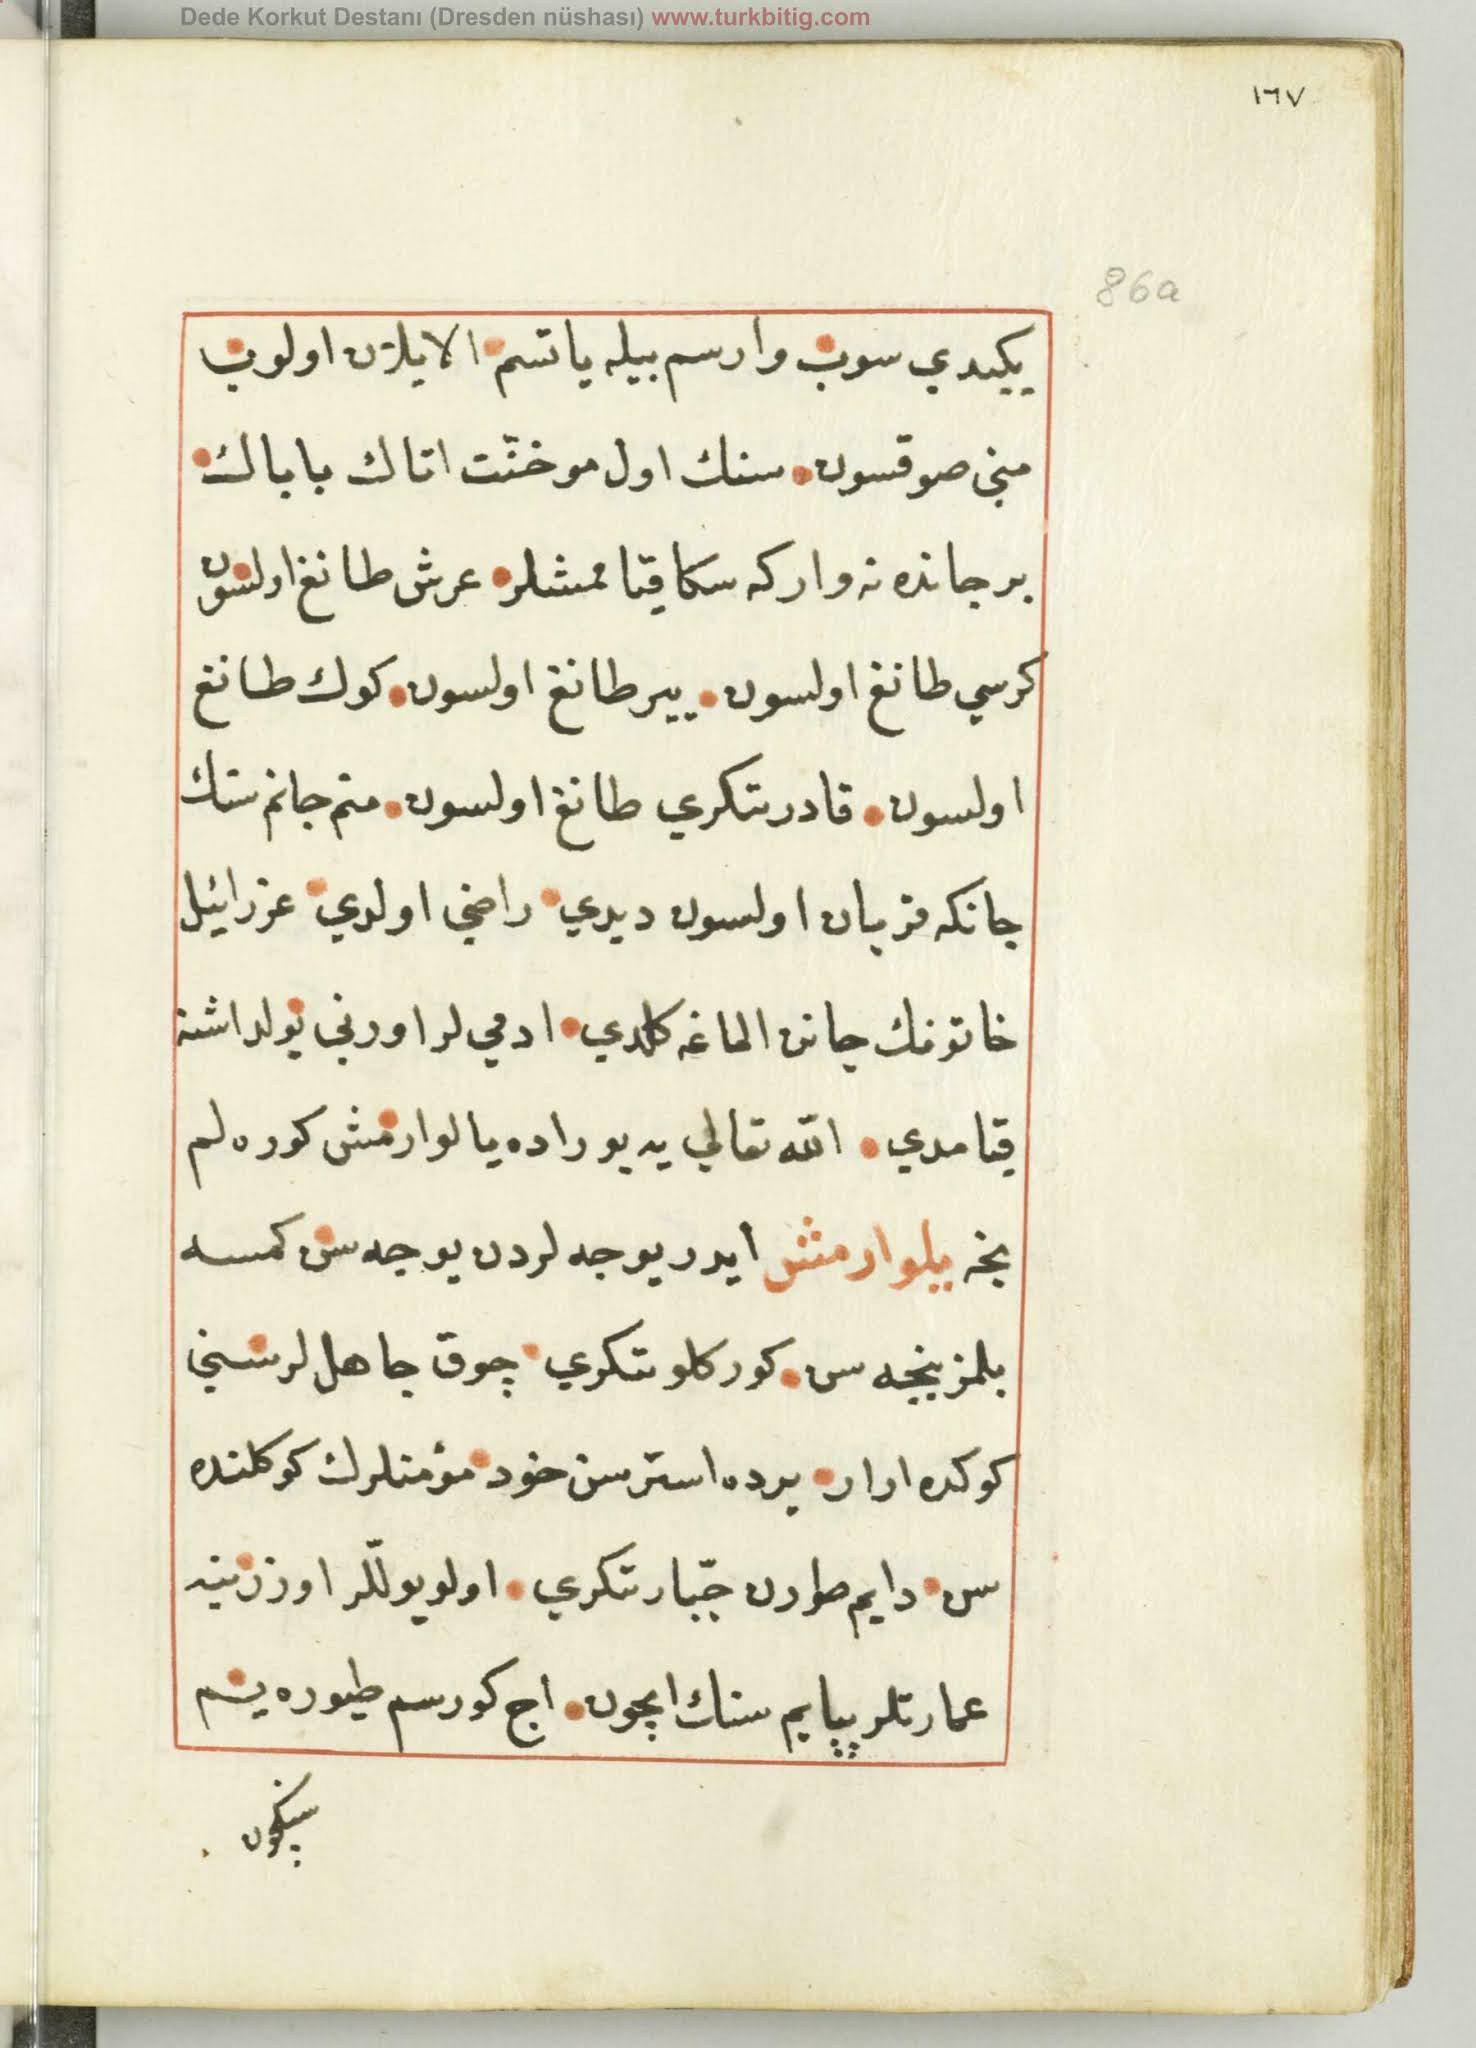 Dede Korkut Destanı (Dresden nüshası) www.turkbitig.com
١٦٧
86a
ييكيدي سوب وارسم بيله ياتسم الا ييلان اولوب
مني صوقسون سنك اول موخنّت اناك باباك
بر جانده نه وار كه سكا قيامشلر عرش طانغ اولسون
كرسي طانغ اولسون يير طانغ اولسون كوك طانغ
اولسون قادر تنكري طانغ اولسون منم جانم سنك
جانكه قربان اولسون ديدي راضي اولدي عزرائيل
خاتونك جانن الماغه كلدي ادمي لر اورني يولداشنه
قيامدي الله تعالي يه بوراده يالوارمش كوره لم
نجه يلوارمش ايدر يوجه لردن يوجه سن كمسه
بلمز نيجه سن كوركلو تنكري چوق جاهللر سني
كوكده ارار يرده استر سن خود مؤمنلرك كوكلنده
سن دايم طورن جبّار تنكري اولو يوللّر اوزرينه
عمارتلر ياپايم سنك ايچون اج كورسم طيوره يم
سنكچون